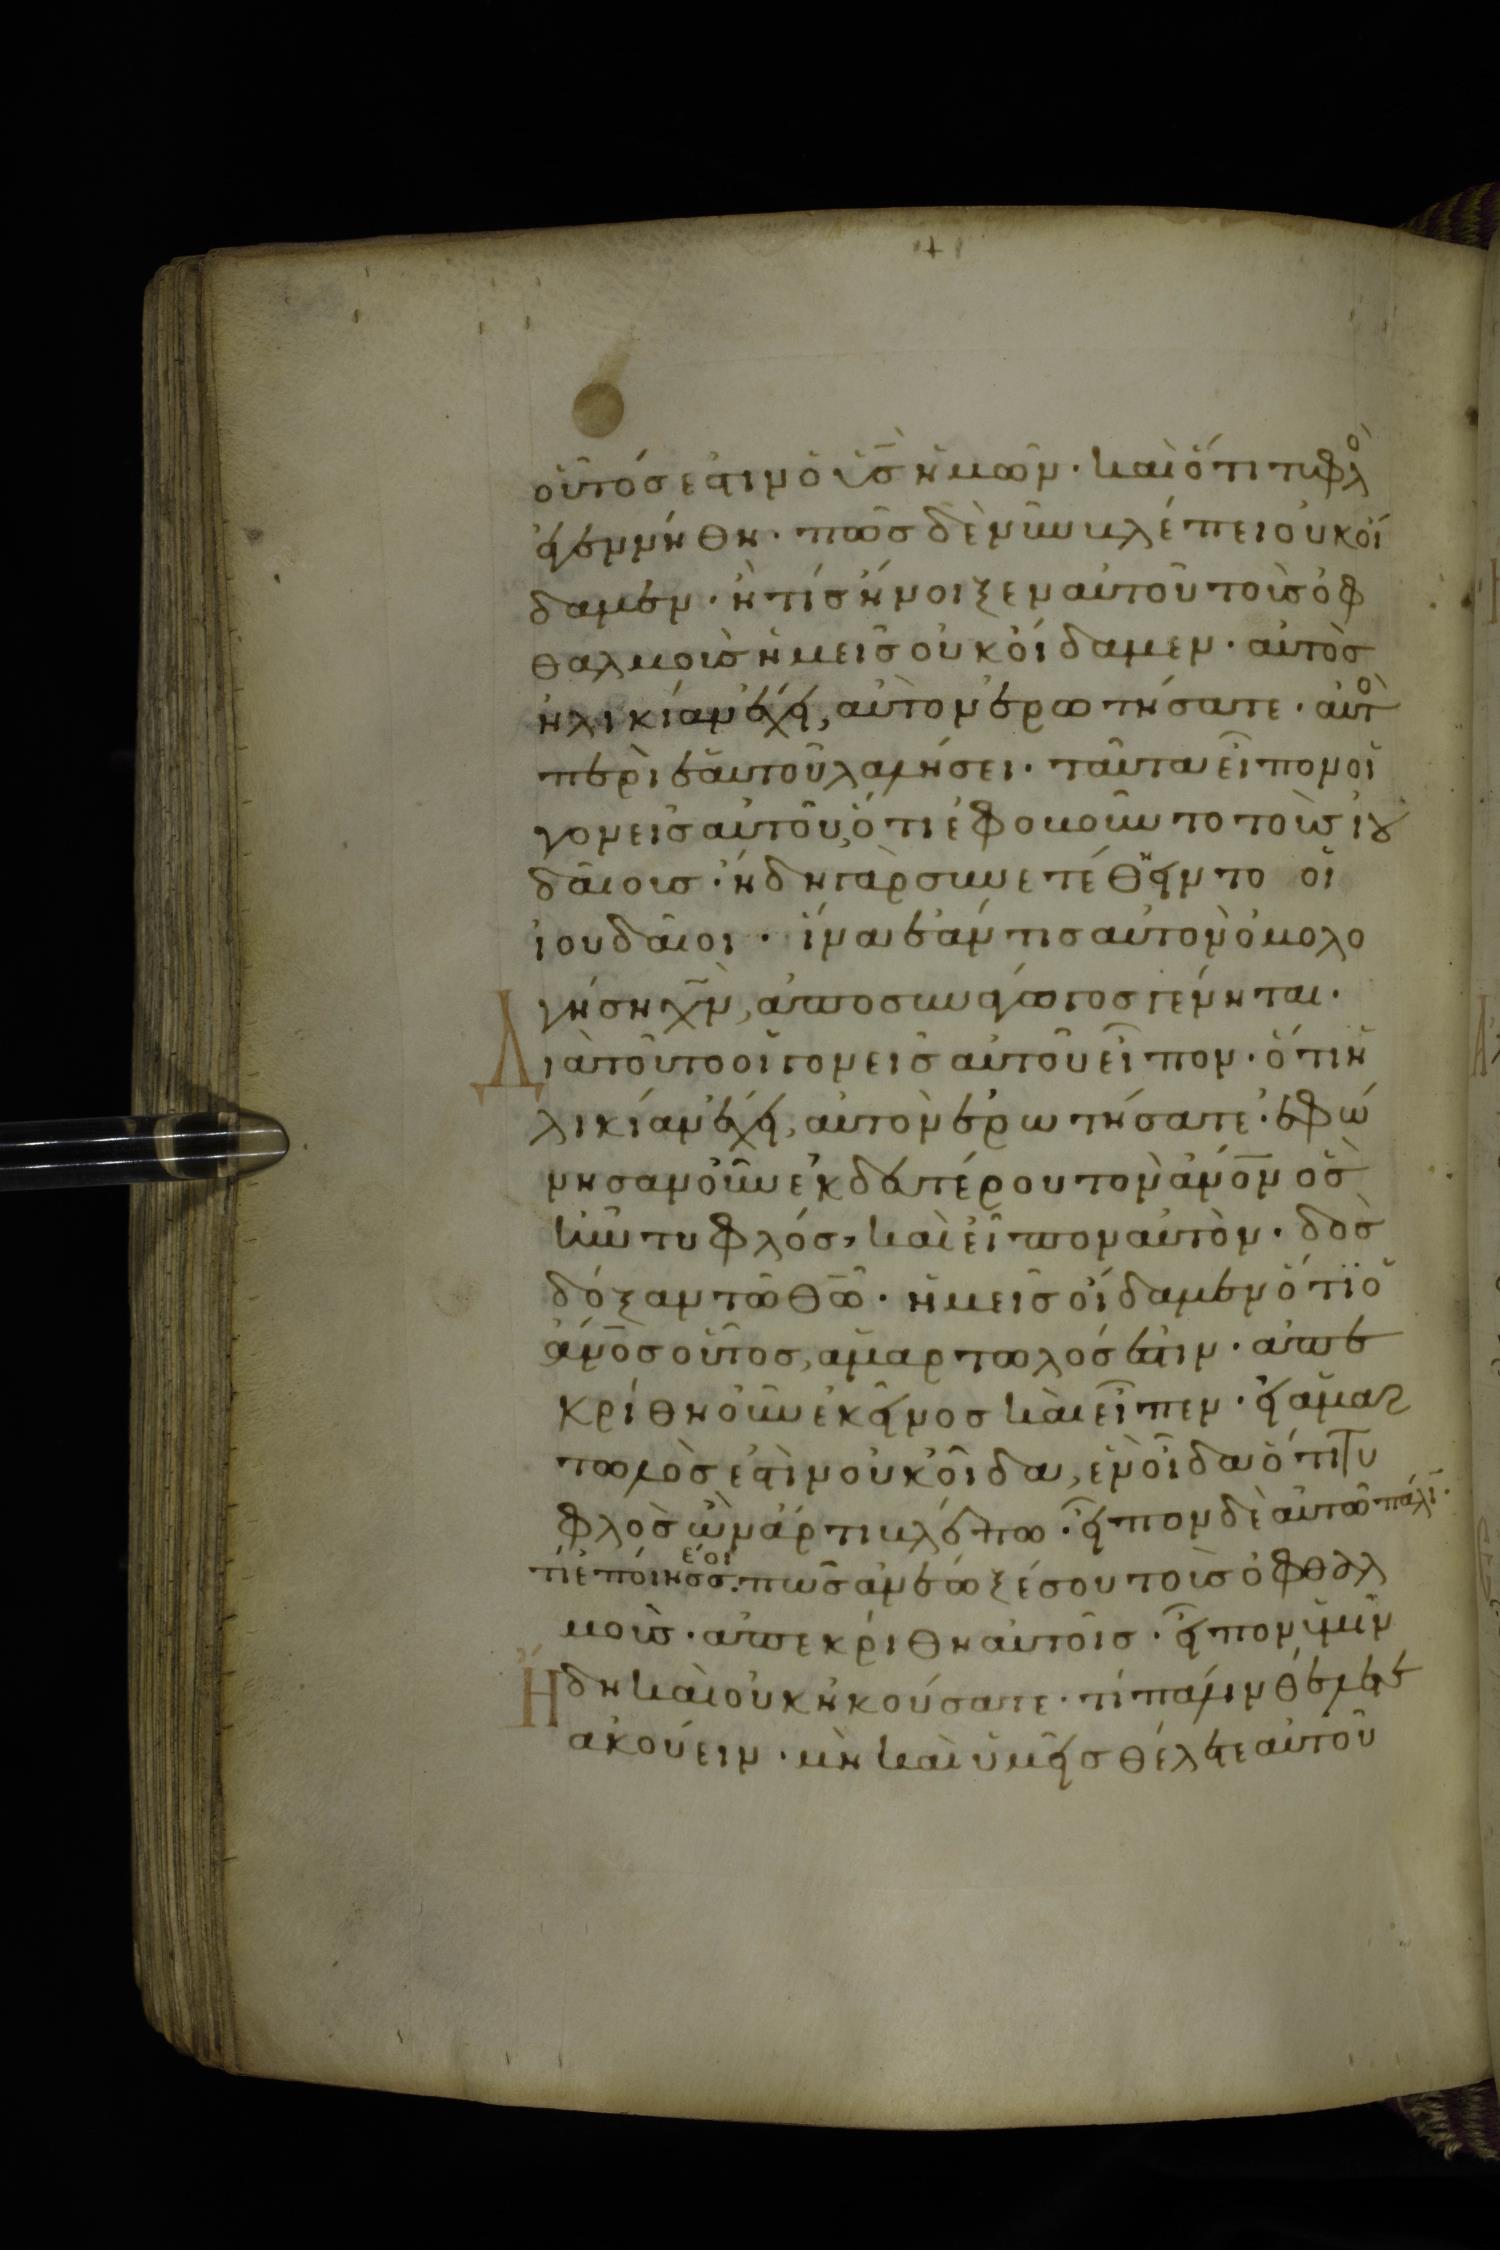 οὗτός ἐστιν ὁ υ̅ς̅ ἡμῶν· καὶ ὅτι τυφλὸ
ἐγεννήθη· πῶς δὲ νῦν βλέπει οὐκ οἴ
δαμεν· ἢ τίς ἤνοιξεν αὐτοῦ τοὺς ὀφ
θαλμοὺς ἡμεῖς οὐκ οἴδαμεν· αὐτὸς
ἡλικίαν ἔχει, αὐτὸν ἐρωτήσατε· αὐτὸ
περὶ ἑαυτοῦ λαλήσει· ταῦτα εἶπον οἱ
γονεῖς αὐτοῦ, ὅτι ἐφοβοῦντο τοὺς ἰου
δαίους· ἤδη γὰρ συνετέθηντο οἱ
ἰουδαῖοι· ἵνα ἐάν τις αὐτὸν ὁμολο
γήσῃ χ̅ν̅, ἀποσυνάγωγος γένηται·
Διὰ τοῦτο οἱ γονεῖς αὐτοῦ εἶπον· ὅτι ἡ
λικίαν ἔχει, αὐτὸν ἐρωτήσατε· ἐφώ
νησαν οὖν ἐκ δευτέρου τὸν α̅ν̅ο̅ν̅ ὃς
ἦν τυφλός, καὶ εἶπον αὐτὸν· δὸς
δόξαν τῶ θ̅ω̅· ἡμεῖς οἴδαμεν ὅτι ὁ
α̅ν̅ο̅ς̅ οὗτος, ἁμαρτωλός ἐστιν· ἀπε
κρίθη οὖν ἐκεῖνος καὶ εἶπεν· εἰ ἁμαρ
τωλὸς ἐστὶν οὐκ οἶδα, ἓν οἶδα ὅτι τυ
φλὸς ὢν ἄρτι βλέπω· εἶπον δὲ αὐτῶ πάλι̅·
τί ἐποίησέ σοι· πῶς ἀνέωξέ σου τοὺς ὀφθαλ
μούς· ἀπεκρίθη αὐτοῖς· εἶπον ὑμῖν
Ἤδη καὶ οὐκ ἠκούσατε· τί πάλιν θέλετε
ἀκούειν· μὴ καὶ ὑμεῖς θέλετε αὐτοῦ